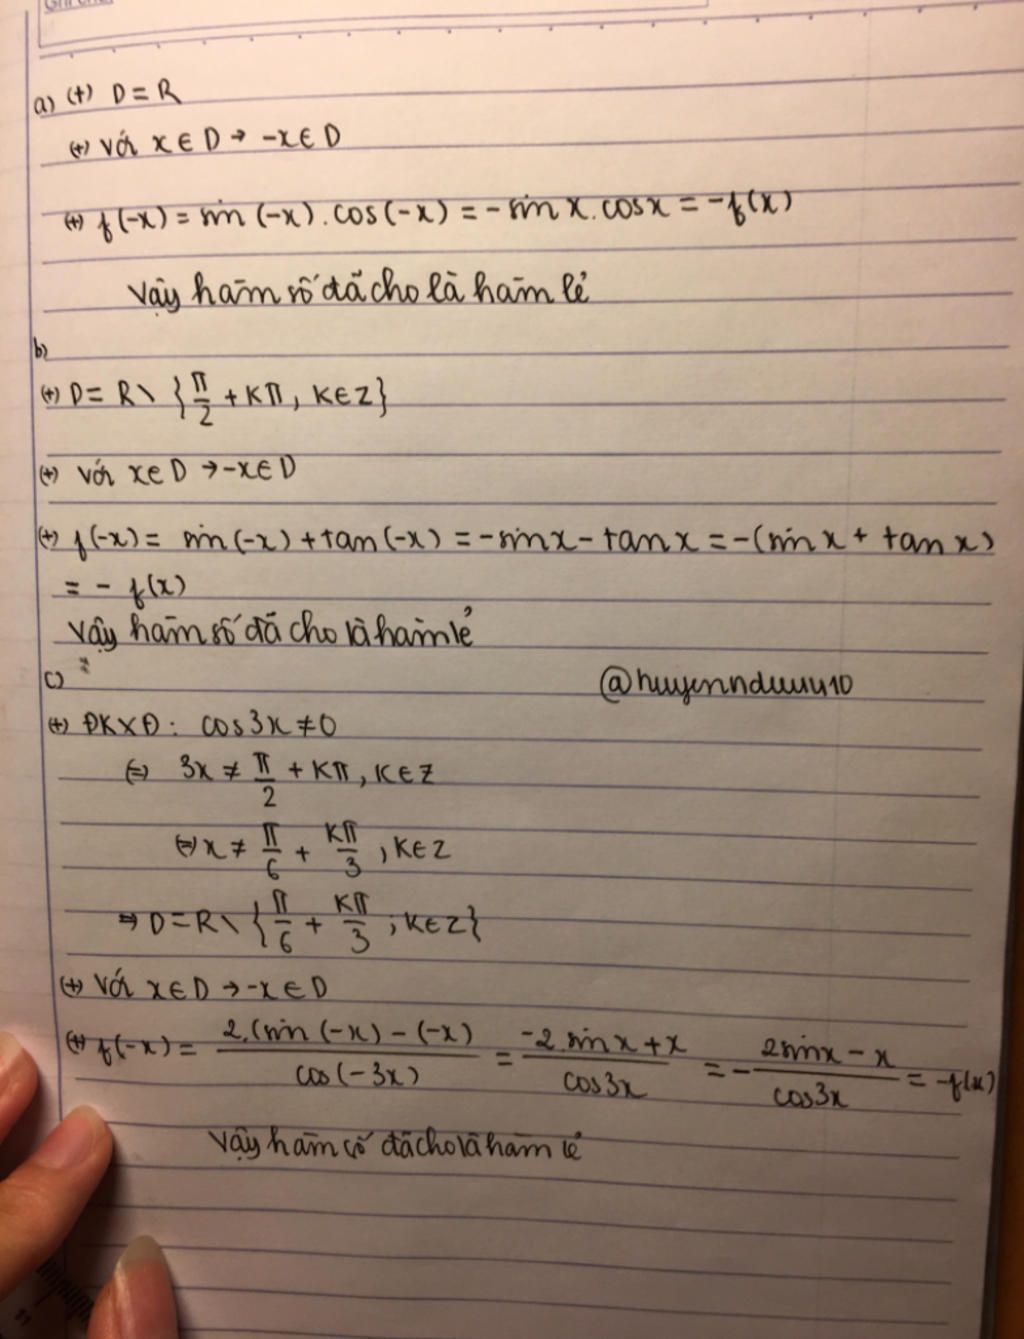 a) (+) D = R
(+) Với x ∈ D → -x ∈ D
(+) f(-x) = sin(-x).cos(-x) = -sin x.cosx = -f(x)
Vậy hàm số đã cho là hàm lẻ
b)
(+) D = R \ {π/2 + kπ, k ∈ Z}
(+) Với x ∈ D → -x ∈ D
(+) f(-x) = sin(-x) + tan(-x) = -sinx - tanx = -(sin x + tan x)
= - f(x)
Vậy hàm số đã cho là hàm lẻ
c)
@huyennduuu10
(+) ĐKXĐ: cos3x ≠ 0
(=) 3x ≠ π/2 + kπ, k ∈ Z
(=) x ≠ π/6 + kπ/3, k ∈ Z
⇒ D = R \ {π/6 + kπ/3; k ∈ Z}
(+) Với x ∈ D → -x ∈ D
(+) f(-x) = 2.(sin(-x) - (-x)/cos(-3x) = -2.sinx + x/cos3x = - 2sinx - x/cos3x = -f(x)
Vậy hàm số đã cho là hàm lẻ